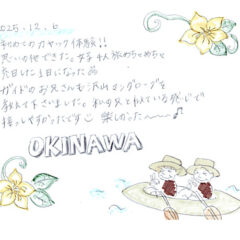 2025.12.6
初めてのカヤック体験!!
思い出できた。女子4人旅めちゃめちゃ
充日した1日になった
ガイドのお兄さんも沢山マングローブを
教えて下さいました。私の兄と似ている感じで
接しやすかったです 楽しかった〜〜♪
OKINAWA